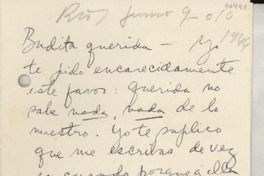 Río, junio 9
1944
Budita querida — Yo
te pido encarecidamente
este favor: Querida no
sabe nada, nada de lo
nuestro. Yo te suplico
que me escribas de vez
en cuando porque ella